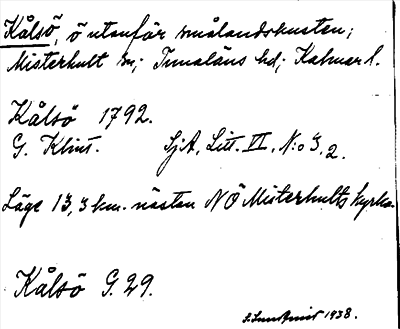 Kålsö, ö utanför smålandskusten;
Misterhult sn; Tunaläns hd; Kalmar l.
Kålsö 1792.
G. Klint. SjA, Litt. VI, N:o 3,2.
Läge 13,3 km. nästan NÖ Misterhults kyrka.
Kålsö G. 29.
S. Sundqvist 1938.